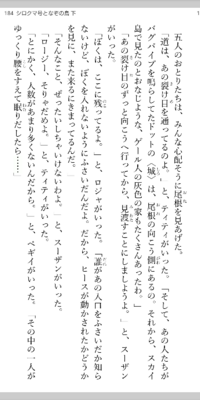 184 シロクマ号となぞの鳥 下
五人のおとりたちは、みんな心配そうに尾根を見あげた。
「道は、あの裂け目を通ってるのよ。」と、ティティがいった。「そして、あの人たちが
バグパイプを鳴らしてたドットの〈城〉は、尾根の向こう側にあるの。それから、スカイ
島で見たのとおなじような、ゲール人の灰色の家もたくさんあったわ。」
「あの裂け目のずっと向こうへ行ってから、見渡すことにしましょうよ。」と、スーザン
がいった。
「ぼくは、ここに残ってるよ。」と、ロジャがいった。「誰があの入口をふさいだか知ら
ないけど、ぼくを入れないようにふさいだんだよ。だから、ヒースが動かされたかどうか
を見に、またまるきにまってるんだ。」
「そんなこと、ぜったいしちゃいけないわよ。」と、スーザンがいった。
「ロージー、そりゃだめよ。」と、ティティがいった。
「とにかく、人数があまり多くないんだから。」と、ペギイがいった。「その中の一人が
ゆっくり腰をすえて眠りだしたら……」